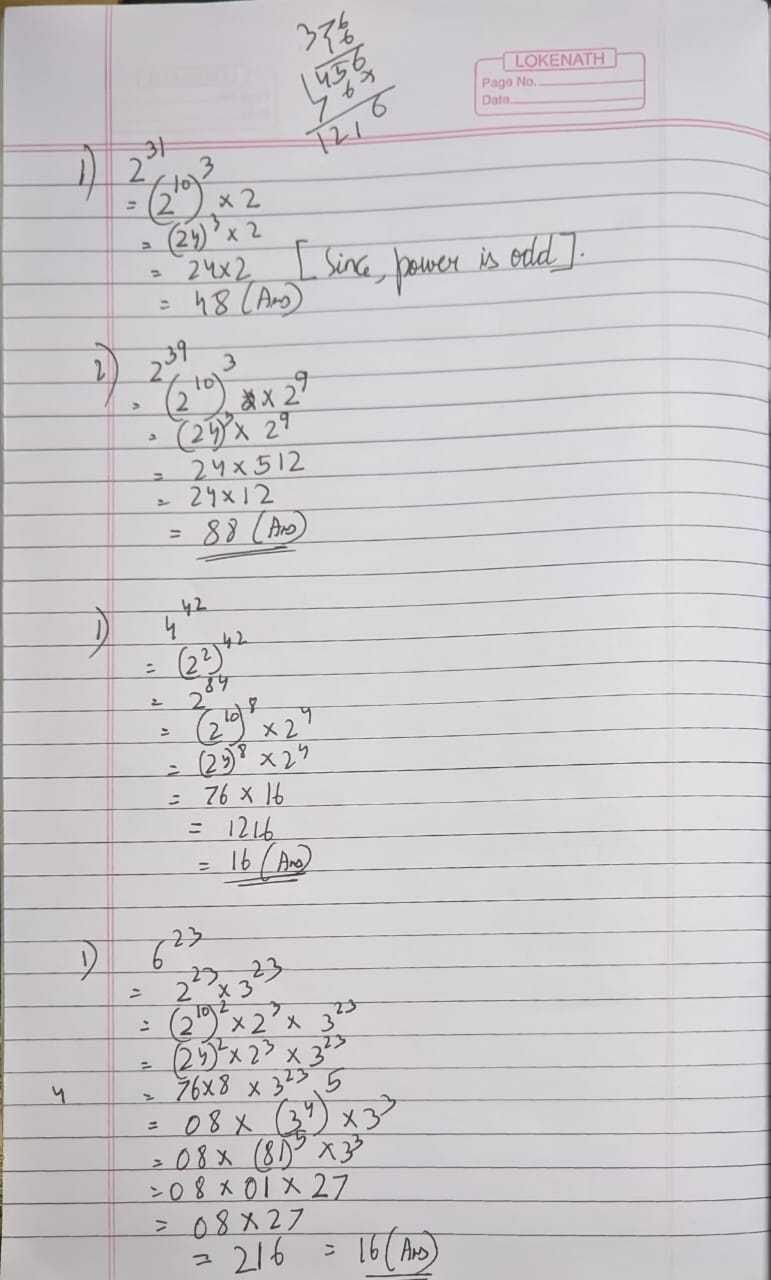 376
6
456
76x
1216
LOKENATH
Page No.
Date
1) 2^31
= (2^10)^3 × 2
= (24)^3 × 2
= 24×2 [Since, power is odd].
= 48 (Ans)
2) 2^39
= (2^10)^3 × 2^9
= (24)^3 × 2^9
= 24×512
= 24×12
= 88 (Ans)
1) 4^42
= (2^2)^42
= 2^84
= (2^10)^8 × 2^4
= (24)^8 × 2^4
= 76 × 16
= 1216
= 16 (Ans)
1) 6^23
= 2^23 × 3^23
= (2^10)^2 × 2^3 × 3^23
= (24)^2 × 2^3 × 3^23
4 = 76×8 × 3^23
= 08 × (3^4)^5 × 3^3
= 08 × (81)^5 × 3^3
= 08 × 01 × 27
= 08 × 27
= 216 = 16 (Ans)